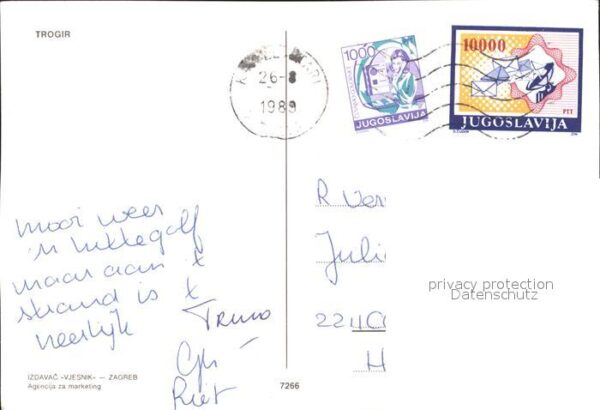 TROGIR
26-8
1989
1000
JUGOSLAVIJA
10000
PTT
JUGOSLAVIJA
mooi weer
'n hittegolf
maar aan 't
strand is 't
heerlijk
Truus
Gyn
Riet
R Ver
Juli
2211C
H
privacy protection
Datenschutz
IZDAVAČ »VJESNIK« — ZAGREB
Agencija za marketing
7266